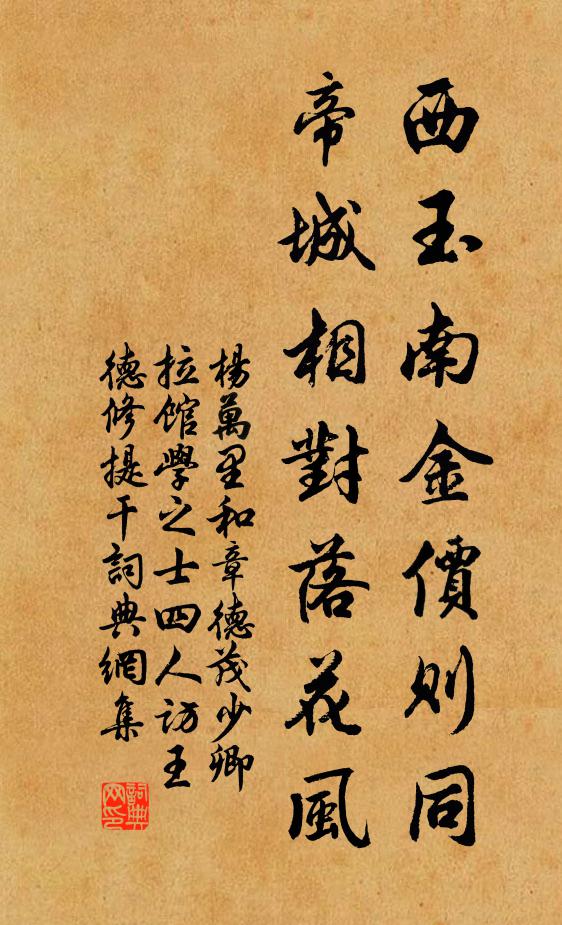 西玉南金價則同
帝城相對落花風
楊萬里和章德茂少卿
拉館學之士四人訪王
德修提干詞典網集
詞典
网印